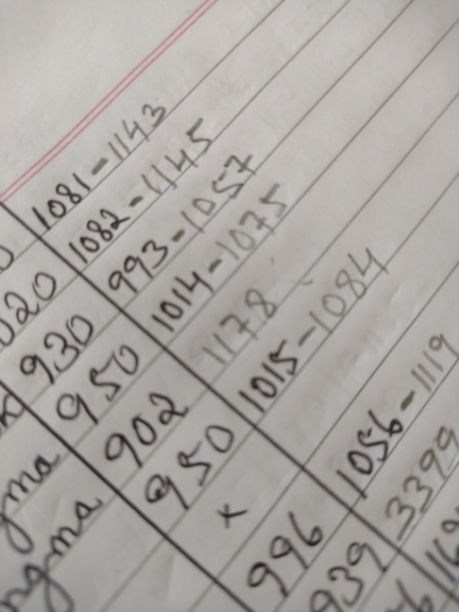 1081-1143
020 1082-1145
930 993-1057
950 1014-1075
gma 902 1178
ngma 950 1015-1084
x
996 1056-1119
939 3399